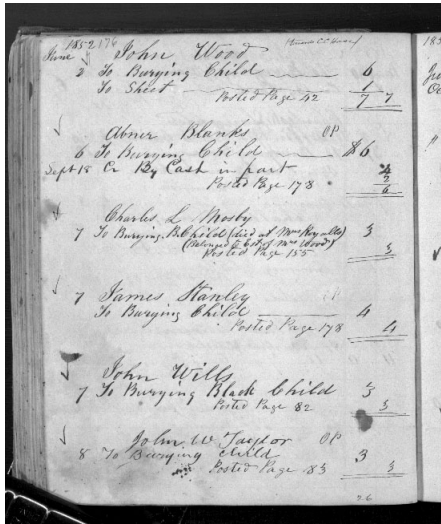 1852 176
June John Wood
2 To Burying Child 6
To Sheet 1
Posted Page 42 7 7
Abner Blanks OP
6 To Burying Child $6
Sept 18 Cr By Cash in part 4
2
Posted Page 178 6
Charles L Mosby
7 To Burying B. Child (died at Mrs Royalls) 3
(Belonged to Est of Mrs Wood)
Posted Page 155 3
7 James Stanley OP
To Burying Child 4
Posted Page 178 4
John Wills
7 To Burying Black Child 3
Posted Page 82 3
John W Taylor OP
8 To Burying Child 3
Posted Page 83 3
26
185